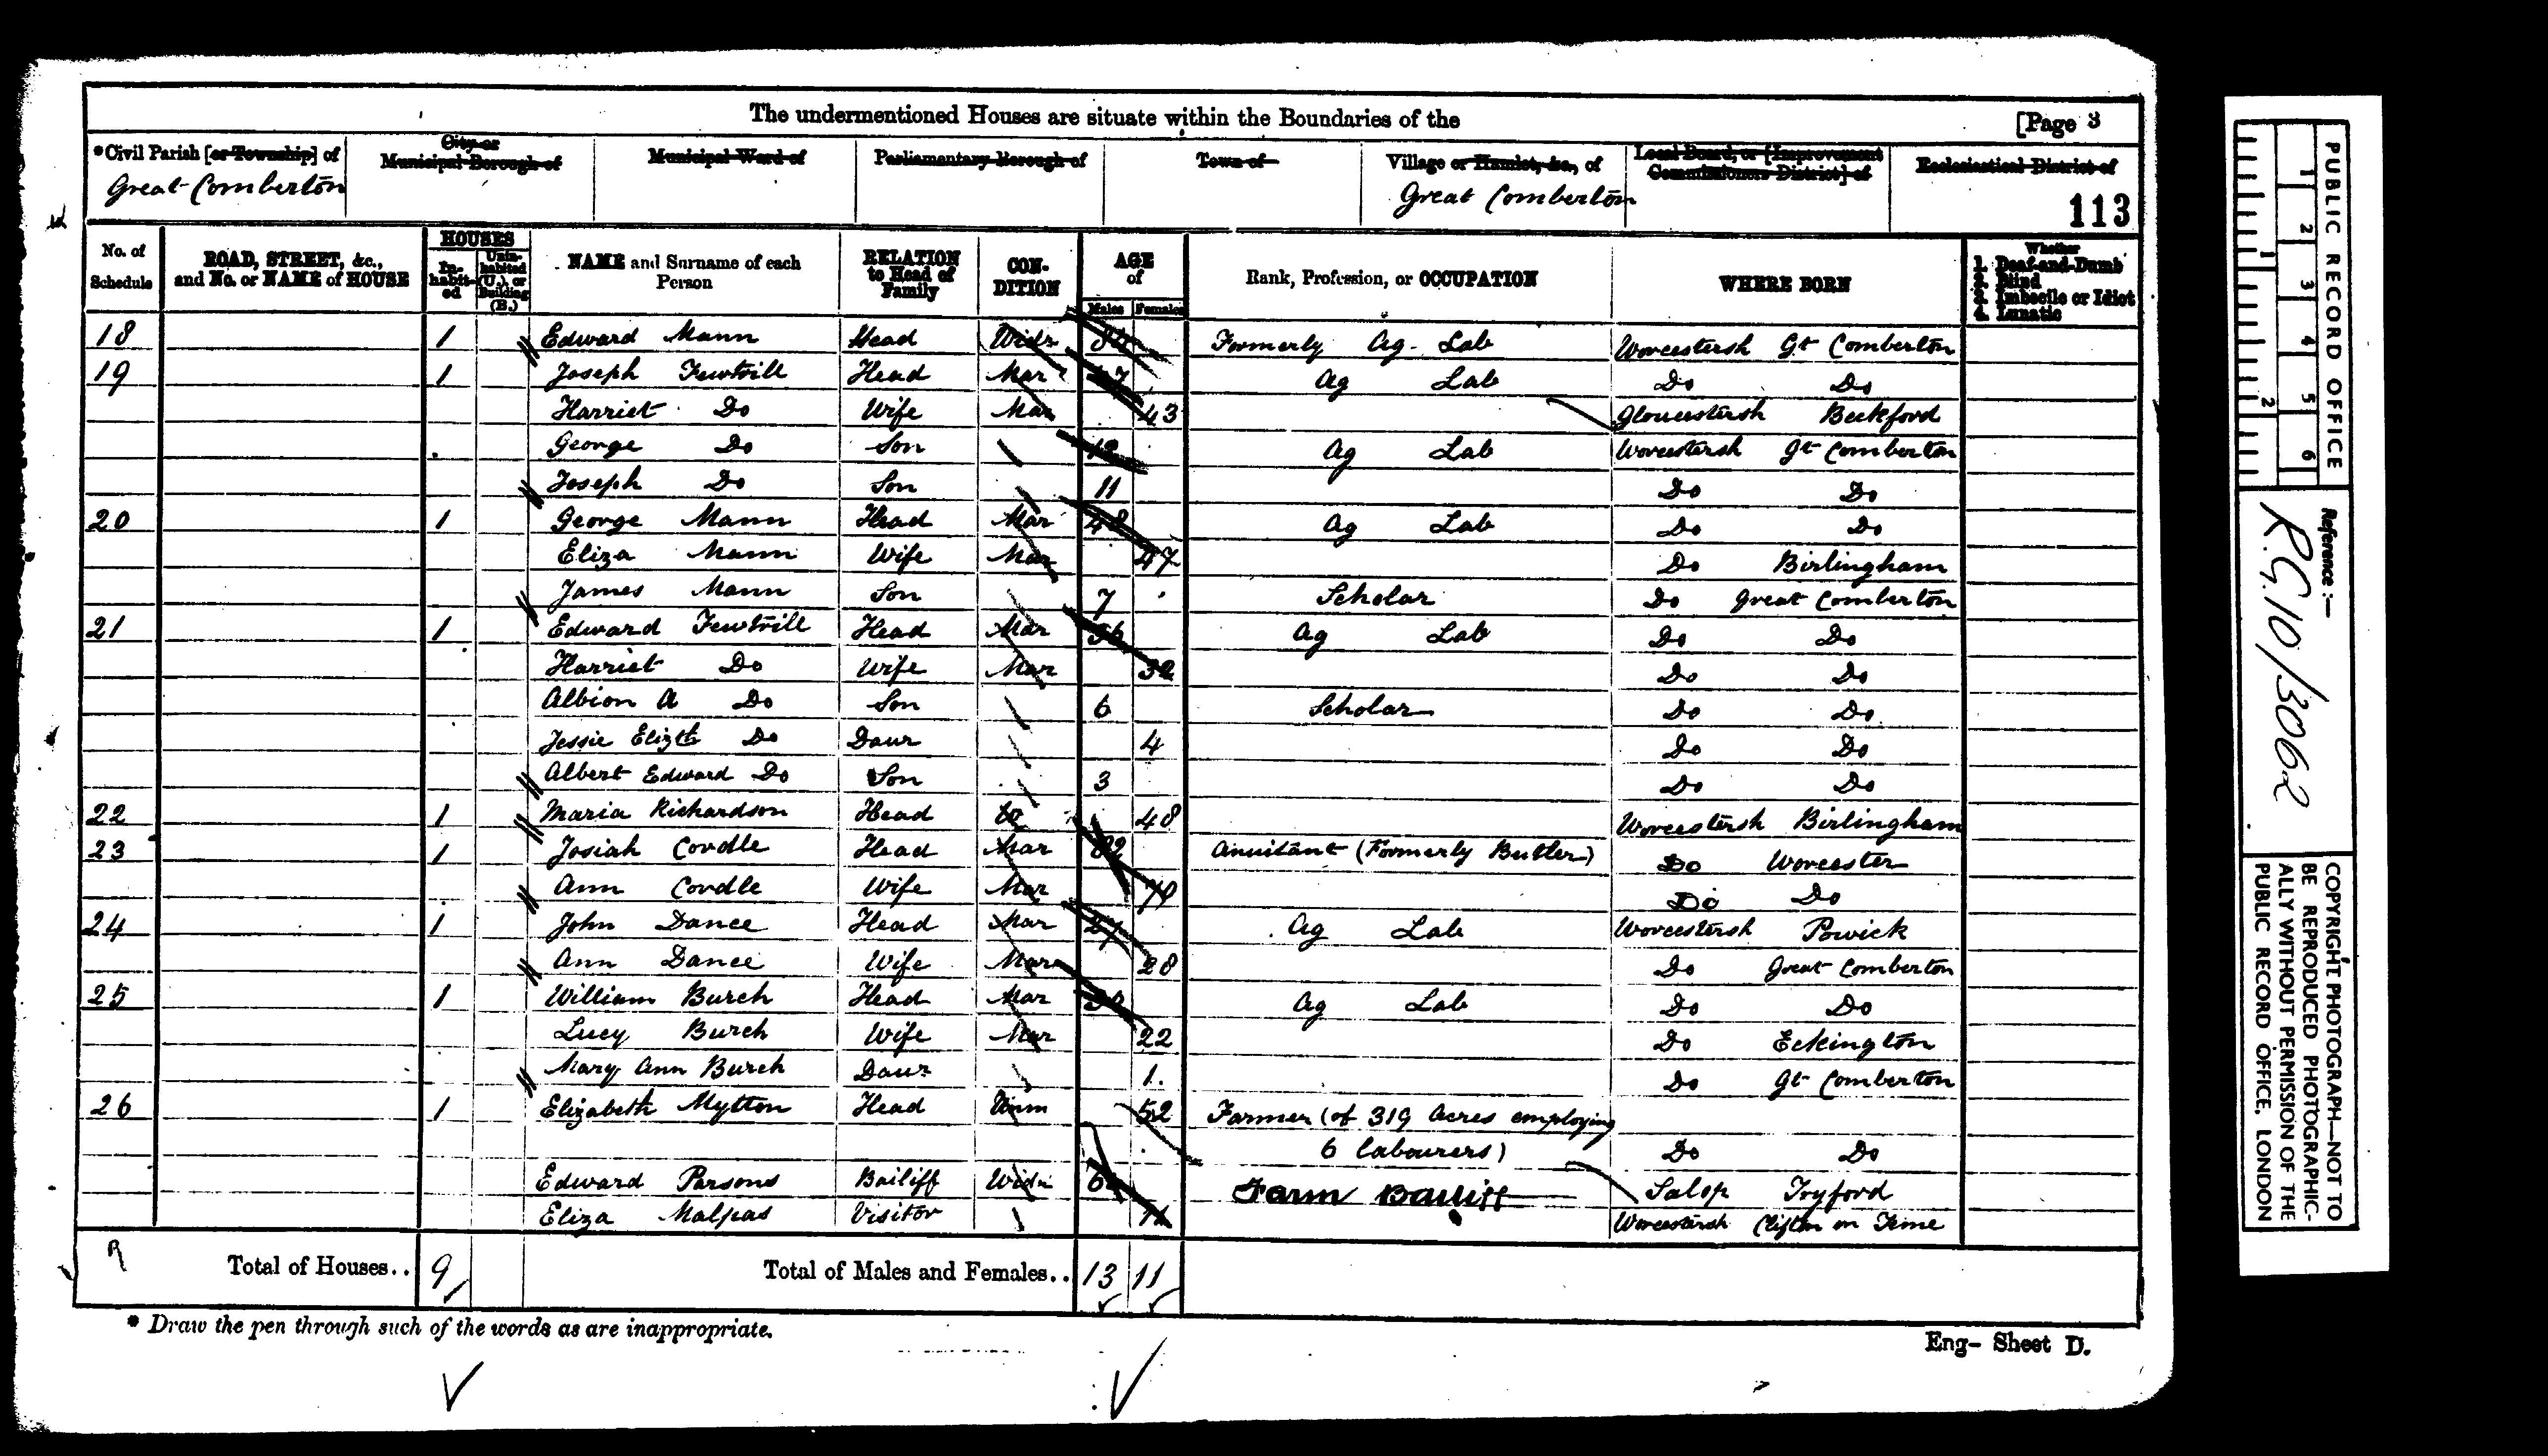 The undermentioned Houses are situate within the Boundaries of the [Page 3
*Civil Parish [or Township] of Great Comberton
City or Municipal Borough of
Municipal Ward of
Parliamentary Borough of
Town of
Village or Hamlet, &c., of Great Comberton
Local Board, or [Improvement Commissioners District] of
Ecclesiastical District of
113
No. of Schedule
ROAD, STREET, &c., and No. or NAME of HOUSE
HOUSES
In-habit-ed
Unin-habited (U.), or Building (B.)
NAME and Surname of each Person
RELATION to Head of Family
CON-DITION
AGE of
Males Females
Rank, Profession, or OCCUPATION
WHERE BORN
Whether
1. Deaf-and-Dumb
2. Blind
3. Imbecile or Idiot
4. Lunatic
18 1 Edward Mann Head Widr Formerly Ag. Lab Worcestersh Gt Comberton
19 1 Joseph Fewtrill Head Mar 47 Ag Lab Do Do
Harriet Do Wife Mar 43 Gloucestersh Beckford
George Do Son Ag Lab Worcestersh Gt Comberton
Joseph Do Son 11 Do Do
20 1 George Mann Head Mar 48 Ag Lab Do Do
Eliza Mann Wife Mar 47 Do Birlingham
James Mann Son 7 Scholar Do Great Comberton
21 1 Edward Fewtrill Head Mar 36 Ag Lab Do Do
Harriet Do Wife Mar 32 Do Do
Albion A Do Son 6 Scholar Do Do
Jessie Elizth Do Daur 4 Do Do
Albert Edward Do Son 3 Do Do
22 1 Maria Richardson Head 48 Worcestersh Birlingham
23 1 Josiah Cordle Head Mar 82 Annuitant (Formerly Butler) Do Worcester
Ann Cordle Wife Mar Do Do
24 1 John Dance Head Mar 27 Ag Lab Worcestersh Powick
Ann Dance Wife Mar 28 Do Great Comberton
25 1 William Burch Head Mar 30 Ag Lab Do Do
Lucy Burch Wife Mar 22 Do Eckington
Mary Ann Burch Daur 1 Do Gt Comberton
26 1 Elizabeth Mytton Head Unm 52 Farmer (of 319 Acres employing
6 labourers) Do Do
Edward Parsons Bailiff Widr Farm Bailiff Salop
Eliza Malpas Visitor Worcestersh Clifton on Teme
Total of Houses.. 9
Total of Males and Females.. 13 11
* Draw the pen through such of the words as are inappropriate.
Eng- Sheet D.
PUBLIC RECORD OFFICE
1 2 3 4 5 6
1 2
Reference:-
R.G. 10/3062
COPYRIGHT PHOTOGRAPH—NOT TO
BE REPRODUCED PHOTOGRAPHIC-
ALLY WITHOUT PERMISSION OF THE
PUBLIC RECORD OFFICE, LONDON